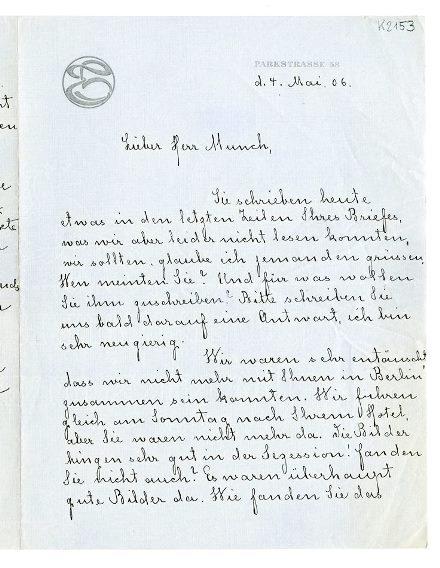 K2153
PARKSTRASSE 58
d. 4. Mai. 06.
Lieber Herr Munch,
Sie schrieben heute
etwas in den letzten Zeilen Ihres Briefes,
was wir aber leider nicht lesen konnten,
wir sollten, glaube ich jemanden grüssen.
Wen meinten Sie? Und für was wollen
Sie ihm zuschreiben? Bitte schreiben Sie
uns bald darauf eine Antwort, ich bin
sehr neugierig.
Wir waren sehr entäuscht
dass wir nicht mehr mit Ihnen in Berlin
zusammen sein konnten. Wir fuhren
gleich am Sonntag nach Ihrem Hotel,
aber Sie waren nicht mehr da. Die Bilder
hingen sehr gut in der Sezession! fanden
Sie nicht auch? Es waren überhaupt
gute Bilder da. Wie fanden Sie das